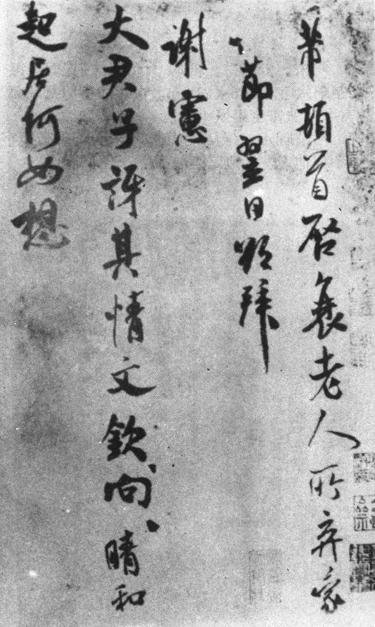 芾頓首啓衰老人所弃蒙
節翌日拜
謝憲
大君子訝其情文欽向晴和
起居何如想